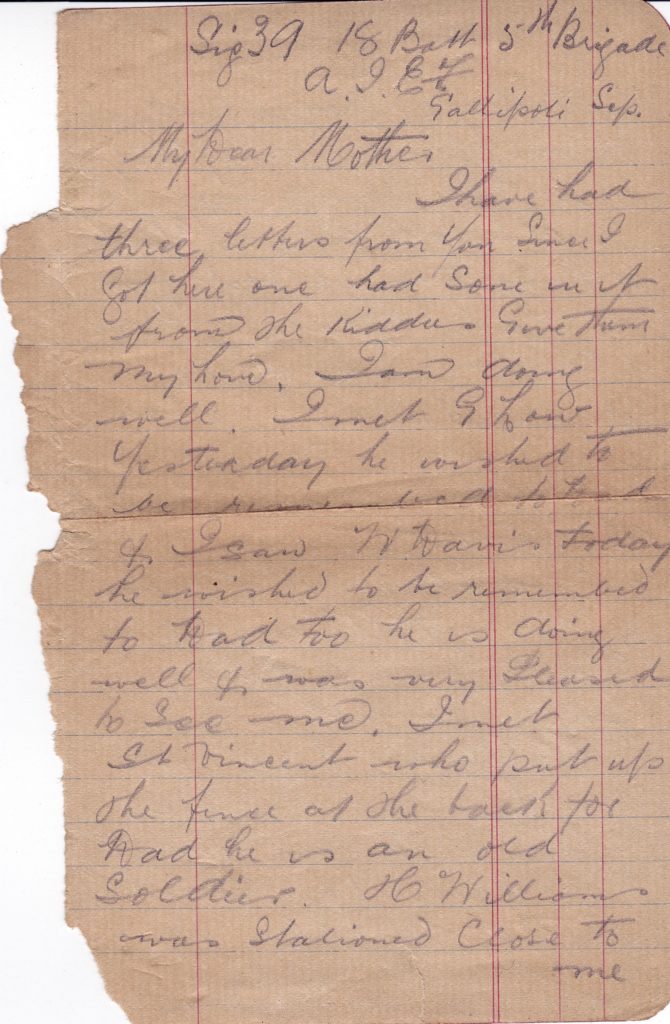 Sig 39 18 Batt 5th Brigade
A.I.E.F
Gallipoli Sep.
My Dear Mother
I have had
three letters from You Since I
Got here one had Some in it
from the Kiddies Give them
My Love. I am doing
well. I met G Low
Yesterday he wished to
be remembed to Dad
& I saw W Davis today
he wished to be remembed
to Dad too he is doing
well & was very Pleased
to See me. I met
St Vincent who put up
the fence at the back for
Dad he is an old
Soldier. H Williams
was Stationed Close to
me